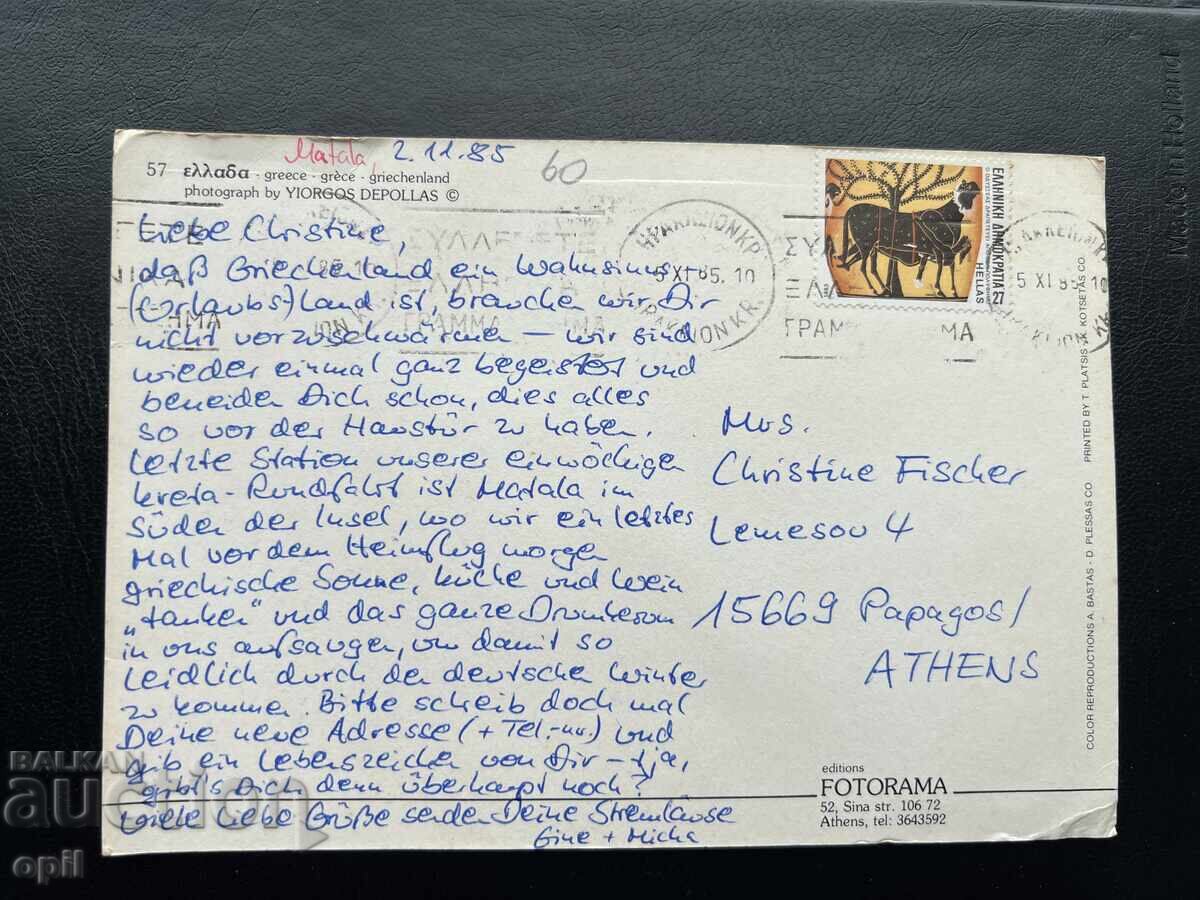 Matala, 2.11.85
60
57 ελλαδα - greece - grèce - griechenland
photograph by YIORGOS DEPOLLAS ©
Liebe Christine,
daß Griechenland ein Wahnsinns-
(Urlaubs-)land ist, brauchen wir Dir
nicht vorzuschwärmen – wir sind
wieder einmal ganz begeistert und
beneiden Dich schon, dies alles
so vor der Haustür zu haben.
Letzte Station unserer einwöchigen
Kreta-Rundfahrt ist Matala im
Süden der Insel, wo wir ein letztes
Mal vor dem Heimflug morgen
griechische Sonne, Küche und Wein
„tanken" und das ganze Drumherum
in uns aufsaugen, um damit so
leidlich durch den deutschen Winter
zu kommen. Bitte scheib doch mal
Deine neue Adresse (+ Tel.-nr.) und
gib ein Lebenszeichen von Dir – tja,
gibt's Dich denn überhaupt noch?
Viele liebe Grüße senden Deine
+ Micha
ΣΥΛΛΕΓΕΤΕ
ΓΡΑΜΜΑ
ΗΜΑ
ΗΡΑΚΛΕΙΟΝ ΚΡ.
5 XI 85. 10
ΕΛΛΗΝΙΚΗ ΔΗΜΟΚΡΑΤΙΑ
HELLAS
27
Mrs.
Christine Fischer
Lemesou 4
15669 Papagos/
ATHENS
COLOR REPRODUCTIONS A. BASTAS - D. PLESSAS CO PRINTED BY T. PLATSIS - X. KOTSETAS CO.
editions
FOTORAMA
52, Sina str. 106 72
Athens, tel: 3643592
Made in Holland
BALKAN
auction
opil